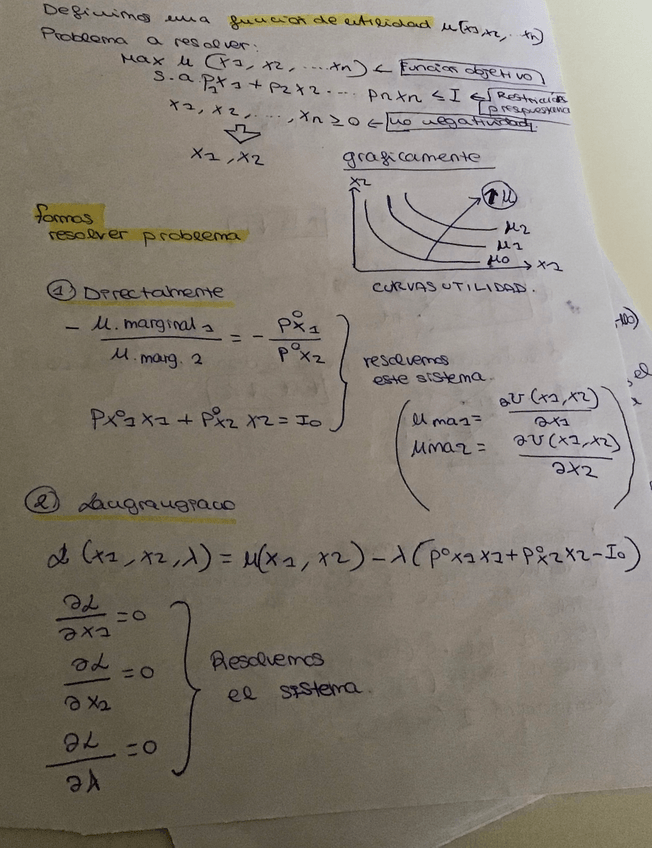 Definimos una funcion de utilidad μ(x1, x2, .. xn)
Problema a resolver:
Max μ (x1, x2, ....xn) ← Funcion objetivo
S.a P1x1 + P2x2 ... Pnxn ≤ I ← Restricción presupuestaria
x1, x2, ..., xn ≥ 0 ← no negatividad
x1, x2
graficamente
x2
↑μ
μ2
μ1
μ0
x1
CURVAS UTILIDAD.
formas
resolver problema
① Directamente
- μ. marginal 1 / μ. marg. 2 = - P°x1 / P°x2
Px°1 x1 + P°x2 x2 = I0
resolvemos
este sistema.
μ ma1 = ∂U(x1, x2) / ∂x1
μ ma2 = ∂U(x1, x2) / ∂x2
② Laugraugiano
L (x1, x2, λ) = μ(x1, x2) - λ(P°x1x1 + P°x2x2 - I0)
∂L / ∂x1 = 0
∂L / ∂x2 = 0
∂L / ∂λ = 0
Resolvemos
el sistema.